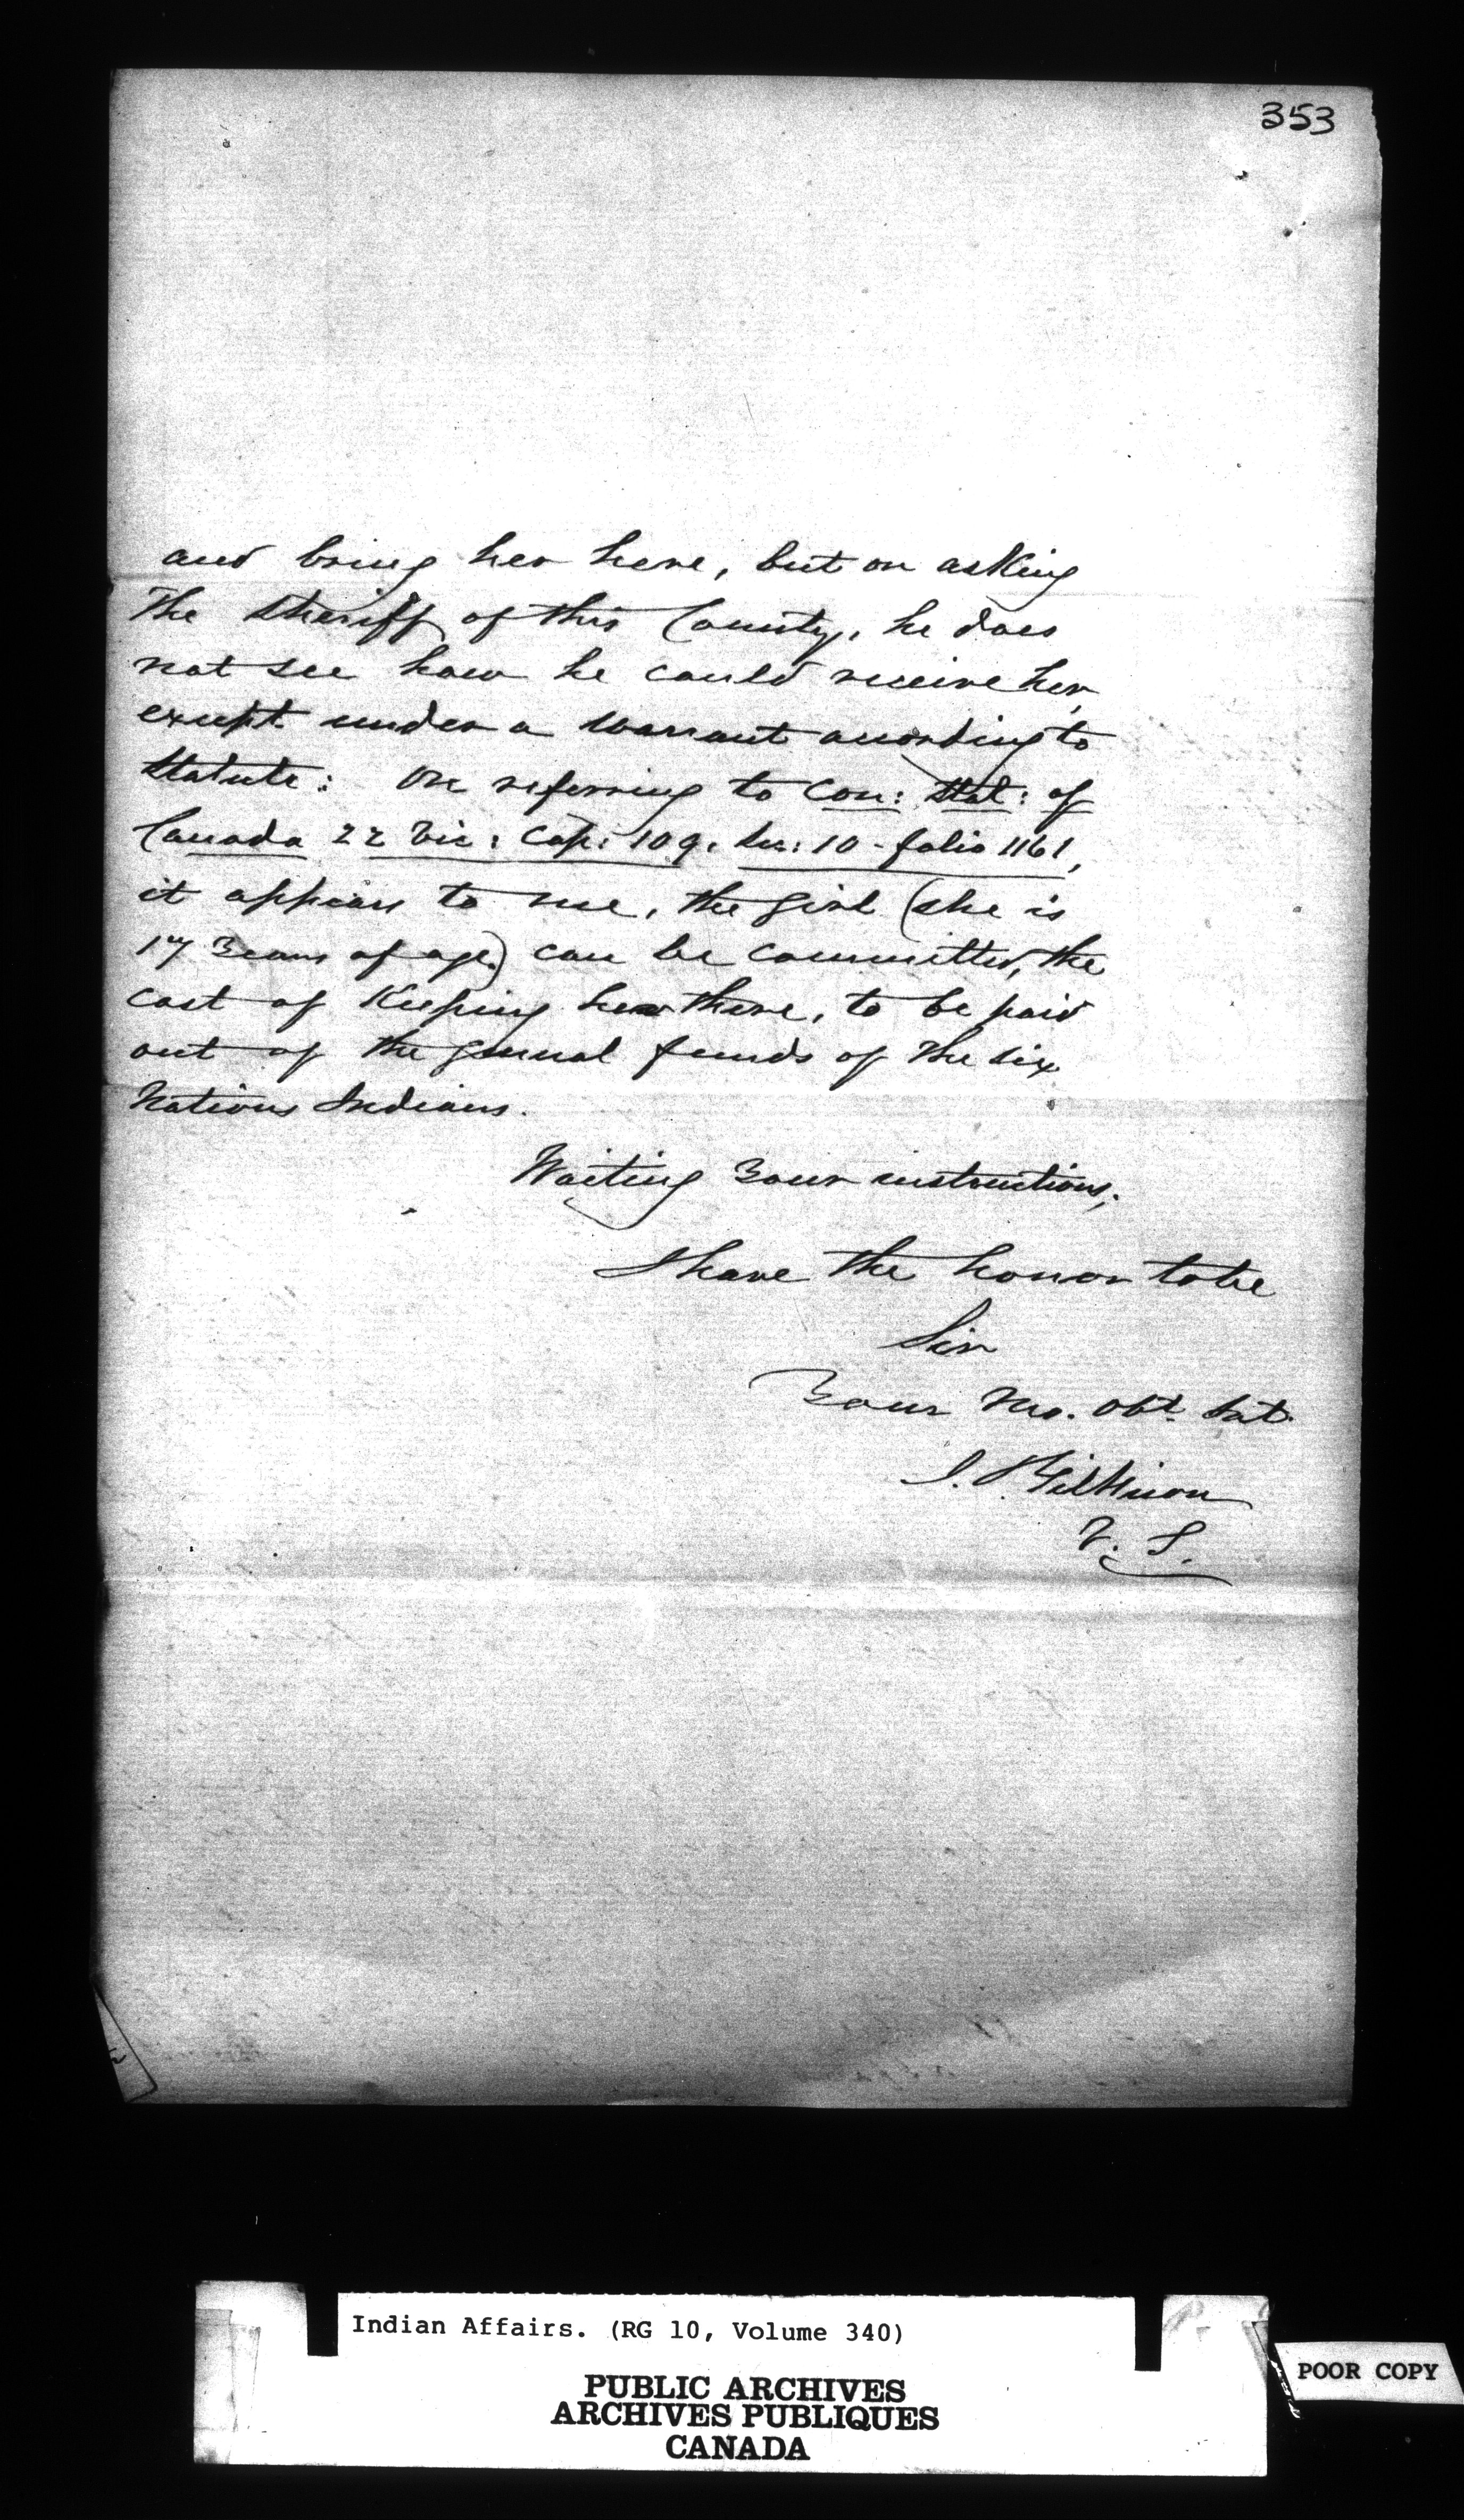 353
and bring her here, but on asking
The Sheriff of this County, he does
not see how he could receive her,
except under a Warrant according to
Statute: On referring to Con: Stat: of
Canada 22 Vic: Cap: 109. Sec: 10 - folio 1161,
it appears to me, the girl (she is
17 Years of age) can be committed, the
cost of Keeping her there, to be paid
out of the general funds of the Six
Nations Indians.
Waiting Your instructions,
I have the honor to be
Sir
Your Mo. Obt. Svt.
J. T. Gilkison
V. S.
Indian Affairs. (RG 10, Volume 340)
PUBLIC ARCHIVES
ARCHIVES PUBLIQUES
CANADA
POOR COPY